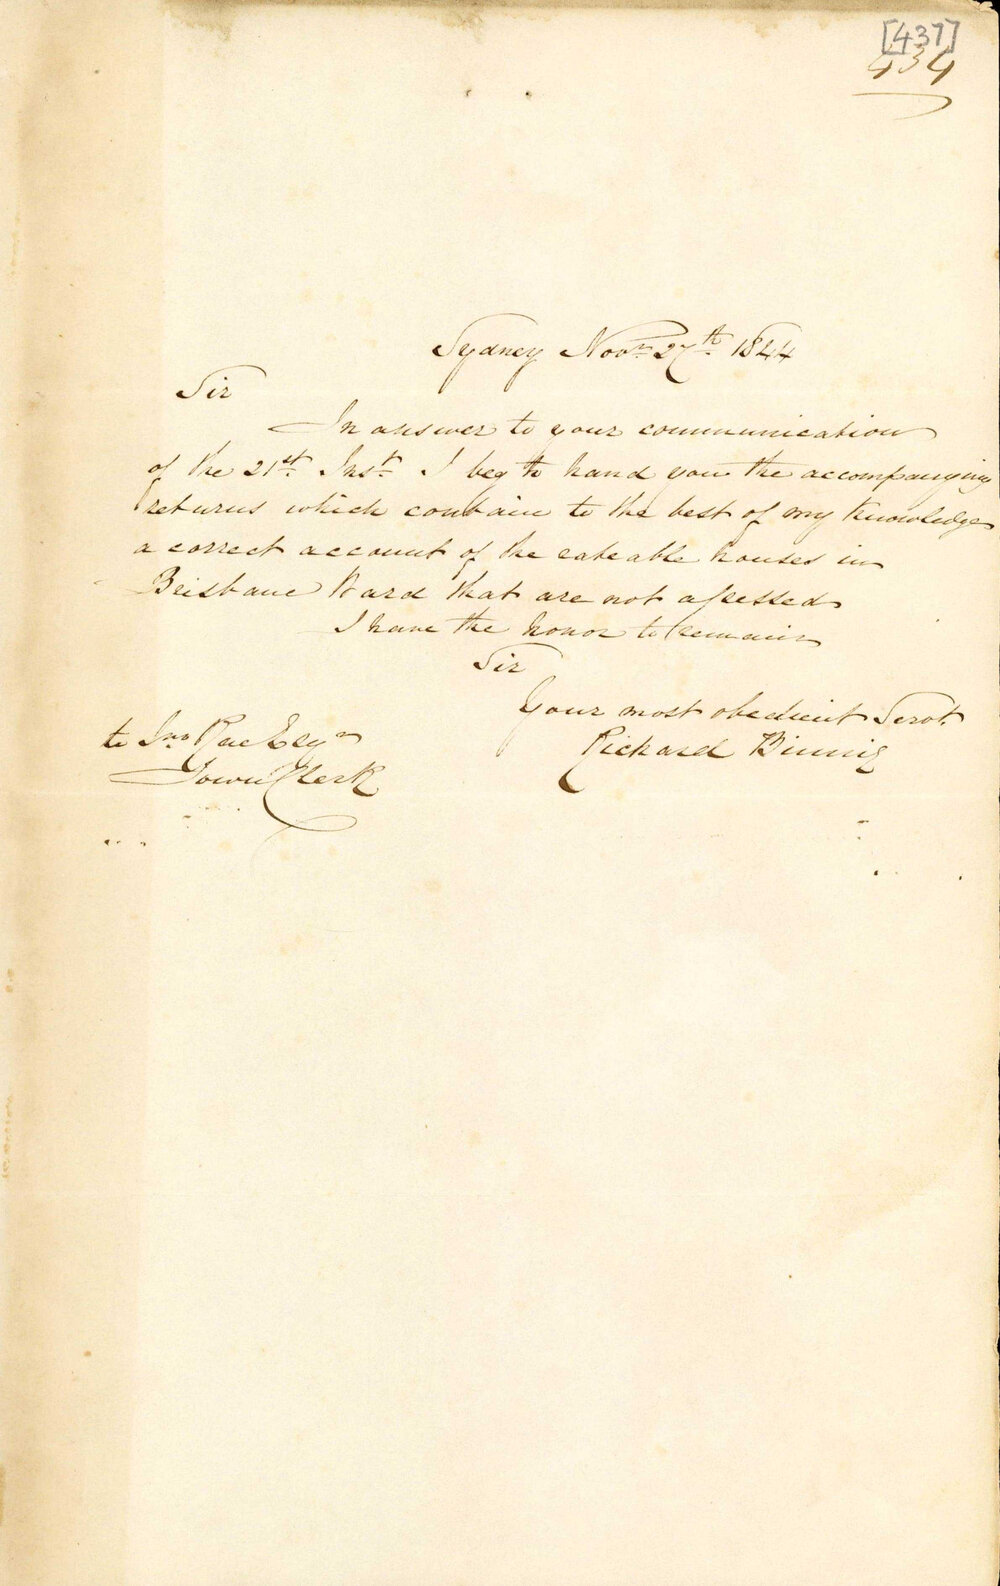 [437]
434
Sydney Novr 27th 1844
Sir
In answer to your communication
of the 21st Inst I beg to hand you the accompanying
returns which contain to the best of my Knowledge
a correct account of the rateable houses in
Brisbane Ward that are not assessed
I have the honor to remain
Sir
Your most obedient Servt
Richard Binnie
to Jno Rae Esqr
Town Clerk